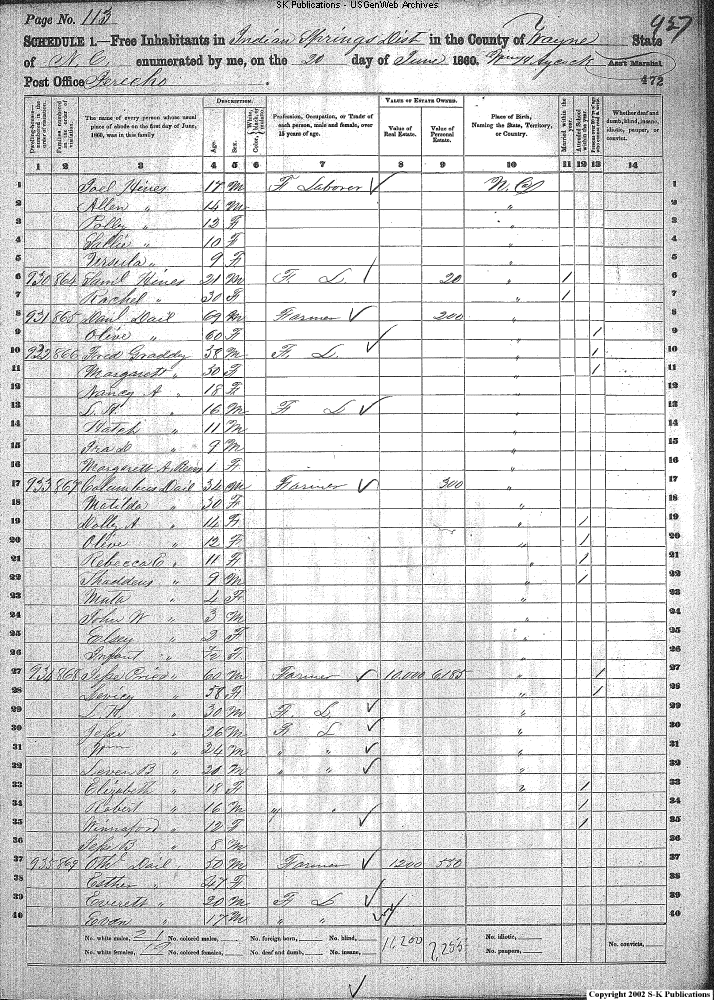 SK Publications - USGenWeb Archives
Page No. 113
957
SCHEDULE 1.—Free Inhabitants in Indian Springs Dist in the County of Wayne State
of N. C. enumerated by me, on the 20 day of June 1860. Aycock Ass't Marshal
Post Office 472
DESCRIPTION. VALUE OF ESTATE OWNED.
Dwelling-houses—numbered in the order of visitation. Families numbered in the order of visitation. The name of every person whose usual place of abode on the first day of June, 1860, was in this family Age. Sex. Color, White, black, or mulatto. Profession, Occupation, or Trade of each person, male and female, over 15 years of age. Value of Real Estate. Value of Personal Estate. Place of Birth, Naming the State, Territory, or Country. Married within the year. Attended School within the year. Whether deaf and dumb, blind, insane, idiotic, pauper, or convict.
1 2 3 4 5 6 7 8 9 10 11 12 13 14
1 Joel Hines 17 M F Laborer N. C 1
2 Allen " 14 M " 2
3 Polly " 12 F " 3
4 Sallie " 10 F " 4
5 Ursula " 9 F " 5
6 930 864 Saml Hines 21 M F. L. 20 " / 6
7 Rachel " 30 F " / 7
8 931 865 Dail 69 M Farmer 200 " 8
9 Olive " 60 F " / 9
10 932 866 Graddy 38 M F. L. " / 10
11 Margarett " 30 F " / 11
12 Nancy A " 18 F " 12
13 " 16 M F L " 13
14 " 11 M " 14
15 Ira " 9 M " 15
16 Margarett A 1 F " 16
17 933 867 Collumbus Dail 34 M Farmer 300 " 17
18 Matilda " 30 F " 18
19 Dolly A " 14 F " / 19
20 Olive " 12 F " / 20
21 Rebecca E " 11 F " / 21
22 Thaddeus " 9 M " / 22
23 " 4 F " 23
24 John W " 3 M " 24
25 Elsey " 2 F " 25
26 Infant " F " 26
27 934 868 60 M Farmer 10,000 6185 " / 27
28 " 58 F " / 28
29 " 30 M F. L. " 29
30 " 26 M F L " 30
31 " 24 M " " " 31
32 B " 20 M " " " 32
33 Elizabeth " 18 F " / 33
34 Robert " 16 M " " / 34
35 " 12 F / 35
36 B " 8 M 36
37 935 869 Dail 50 M Farmer 1200 550 37
38 Esther " 47 F 38
39 Everett " 20 M F L 39
40 Evan " 17 M " " 40
No. white males, 21 No. colored males, No. foreign born, No. blind, 11,200 No. idiotic, No. convicts,
No. white females, 19 No. colored females, No. deaf and dumb, No. insane, 7,255 No. paupers,
Copyright 2002 S-K Publications